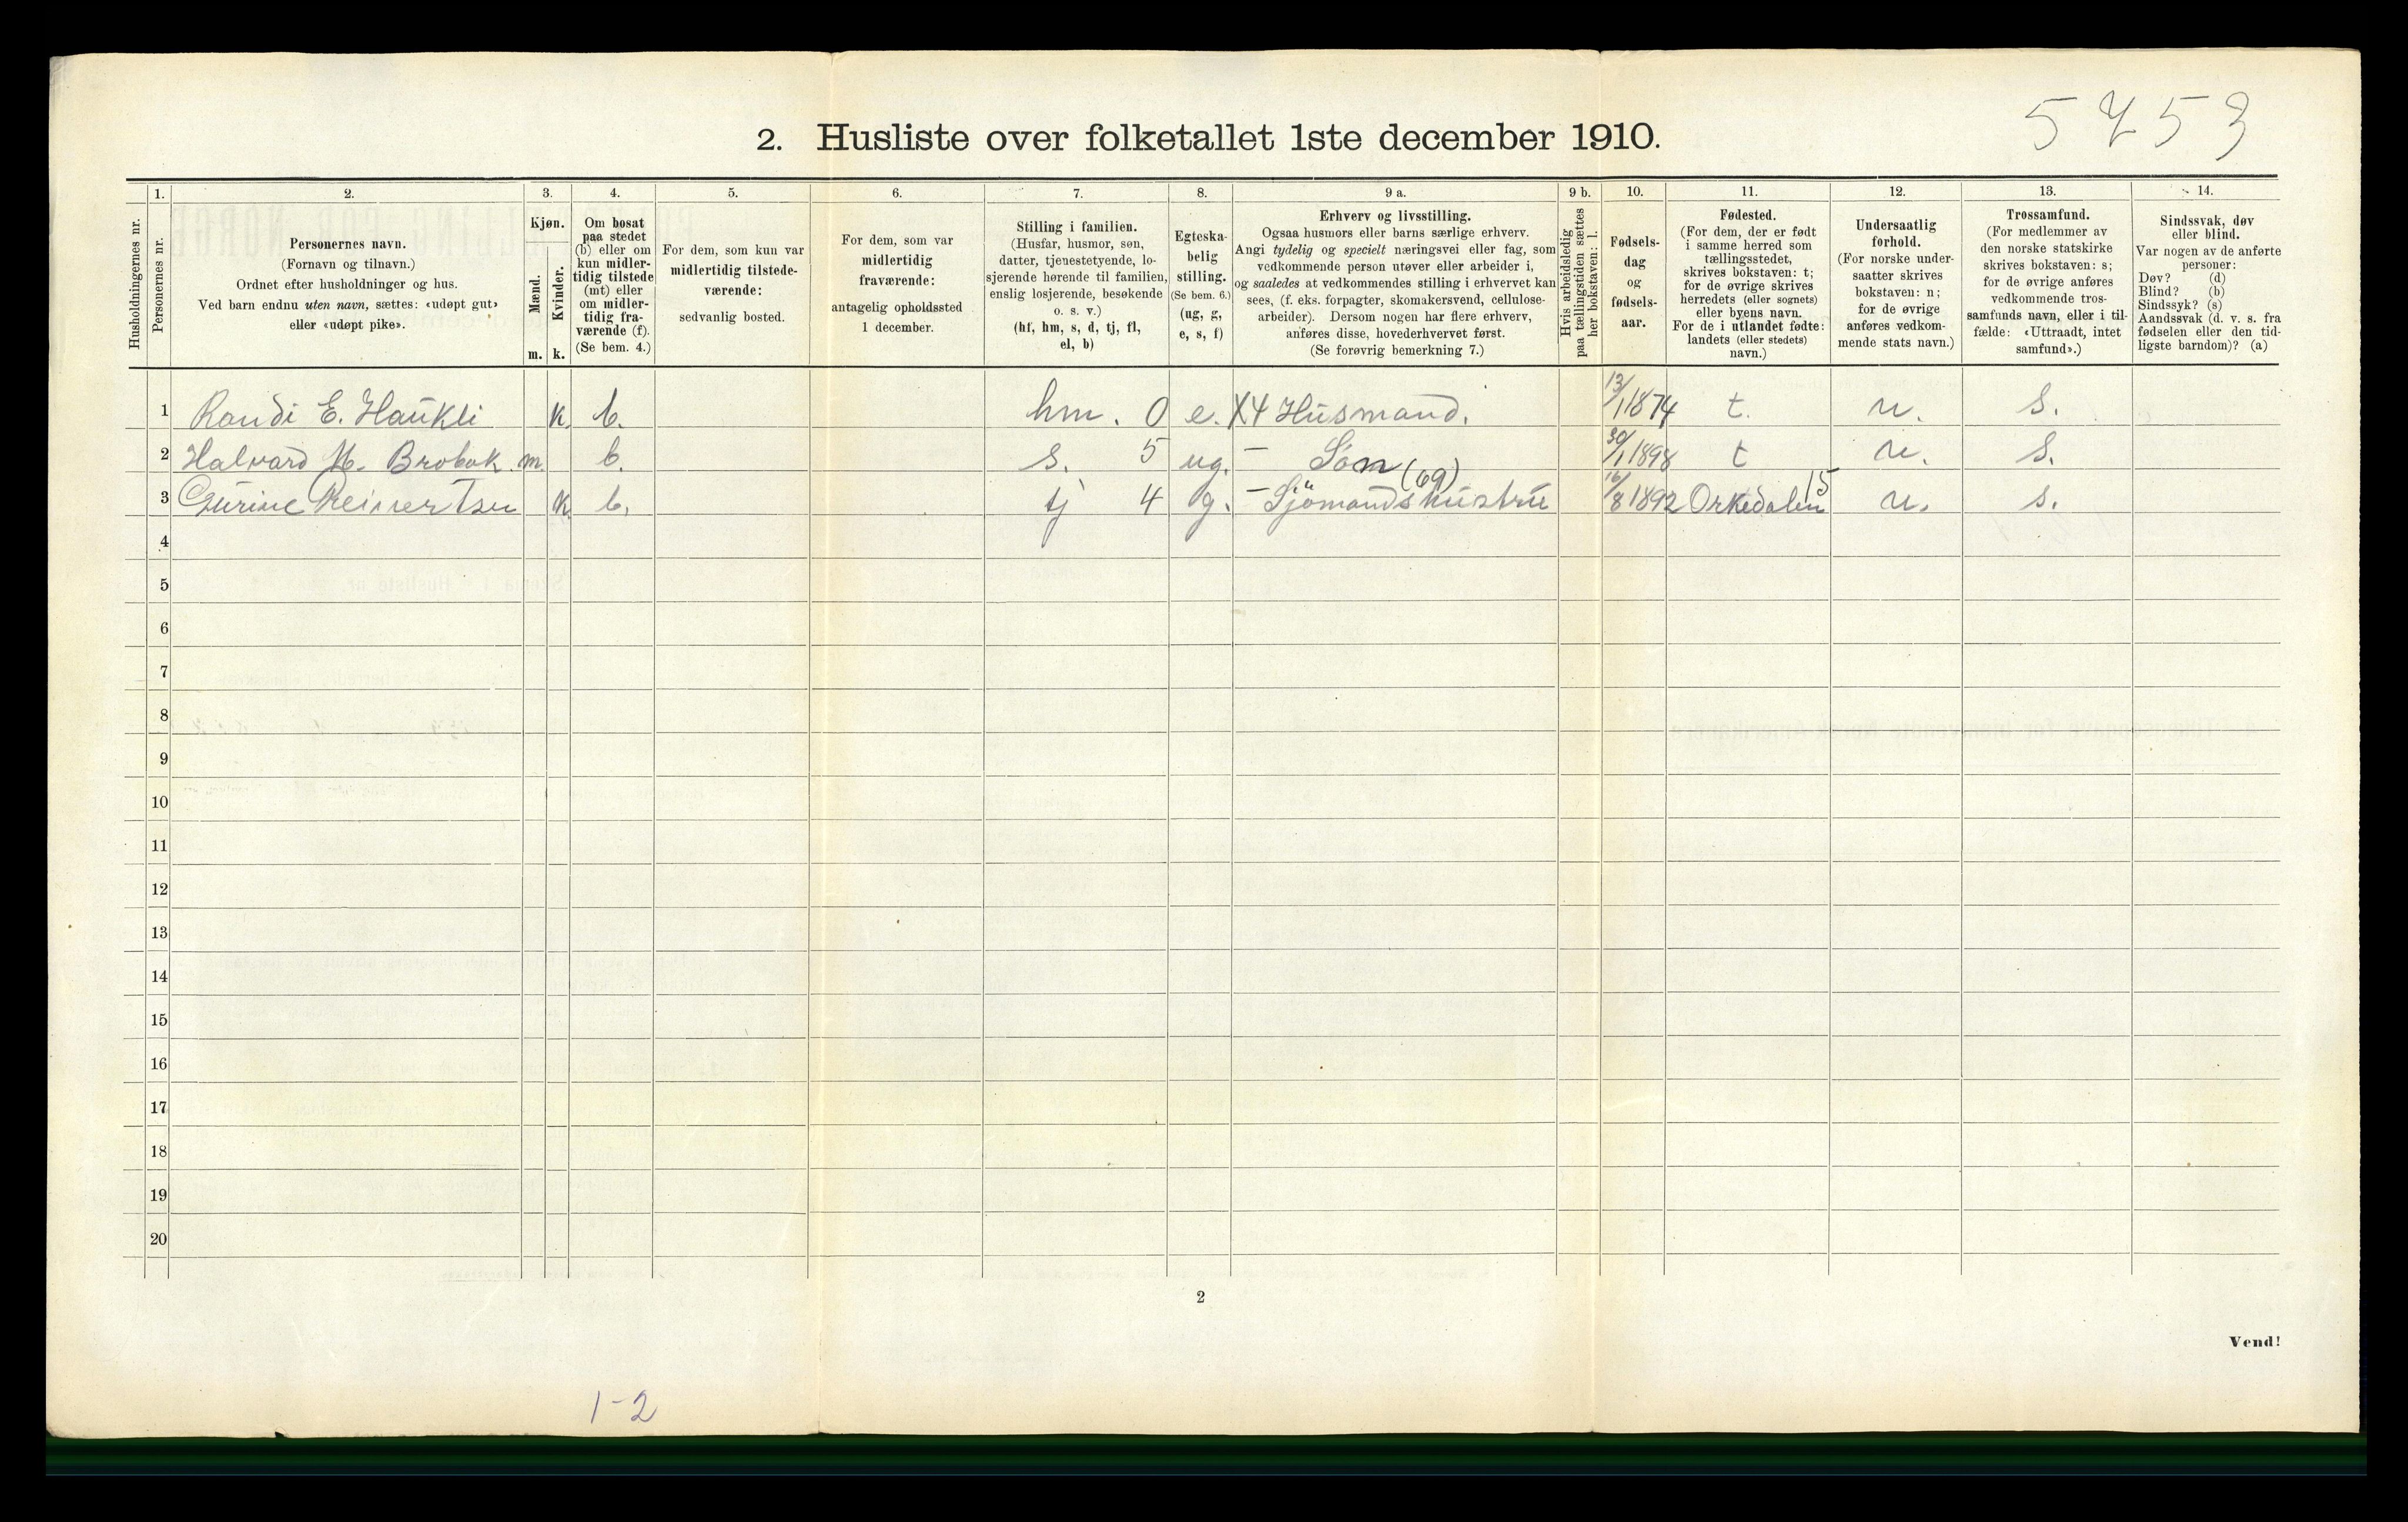 5753
2. Husliste over folketallet 1ste december 1910.
Husholdningernes nr.
1.
Personernes nr.
2.
Personernes navn.
(Fornavn og tilnavn.)
Ordnet efter husholdninger og hus.
Ved barn endnu uten navn, sættes: «udøpt gut»
eller «udøpt pike».
3.
Kjøn.
Mænd.
m.
Kvinder.
k.
4.
Om bosat
paa stedet
(b) eller om
kun midler-
tidig tilstede
(mt) eller
om midler-
tidig fra-
værende (f).
(Se bem. 4.)
5.
For dem, som kun var
midlertidig tilstede-
værende:
sedvanlig bosted.
6.
For dem, som var
midlertidig
fraværende:
antagelig opholdssted
1 december.
7.
Stilling i familien.
(Husfar, husmor, søn,
datter, tjenestetyende, lo-
sjerende hørende til familien,
enslig losjerende, besøkende
o. s. v.)
(hf, hm, s, d, tj, fl,
el, b)
8.
Egteska-
belig
stilling.
(Se bem. 6.)
(ug, g,
e, s, f)
9 a.
Erhverv og livsstilling.
Ogsaa husmors eller barns særlige erhverv.
Angi tydelig og specielt næringsvei eller fag, som
vedkommende person utøver eller arbeider i,
og saaledes at vedkommendes stilling i erhvervet kan
sees, (f. eks. forpagter, skomakersvend, cellulose-
arbeider). Dersom nogen har flere erhverv,
anføres disse, hovederhvervet først.
(Se forøvrig bemerkning 7.)
9 b.
Hvis arbeidsledig
paa tællingstiden sættes
her bokstaven: l.
10.
Fødsels-
dag
og
fødsels-
aar.
11.
Fødested.
(For dem, der er født
i samme herred som
tællingsstedet,
skrives bokstaven: t;
for de øvrige skrives
herredets (eller sognets)
eller byens navn.
For de i utlandet fødte:
landets (eller stedets)
navn.)
12.
Undersaatlig
forhold.
(For norske under-
saatter skrives
bokstaven: n;
for de øvrige
anføres vedkom-
mende stats navn.)
13.
Trossamfund.
(For medlemmer av
den norske statskirke
skrives bokstaven: s;
for de øvrige anføres
vedkommende tros-
samfunds navn, eller i til-
fælde: «Uttraadt, intet
samfund».)
14.
Sindssvak, døv
eller blind.
Var nogen av de anførte
personer:
Døv? (d)
Blind? (b)
Sindssyk? (s)
Aandssvak (d. v. s. fra
fødselen eller den tid-
ligste barndom)? (a)
1 Randi E. Haukli k. b. hm. 0 e. X4 Husmand. 13/1 1874 t. n. s.
2 Halvard M. Brobak. m. b. s. 5 ug. - Søn 30/1 1898 t n. s.
(69) 15
3 Gurine Reinertsen k. b. tj 4 g. - Sjömandshustru 16/8 1892 Orkedalen n. s.
4
5
6
7
8
9
10
11
12
13
14
15
16
17
18
19
20
2
Vend!
1-2